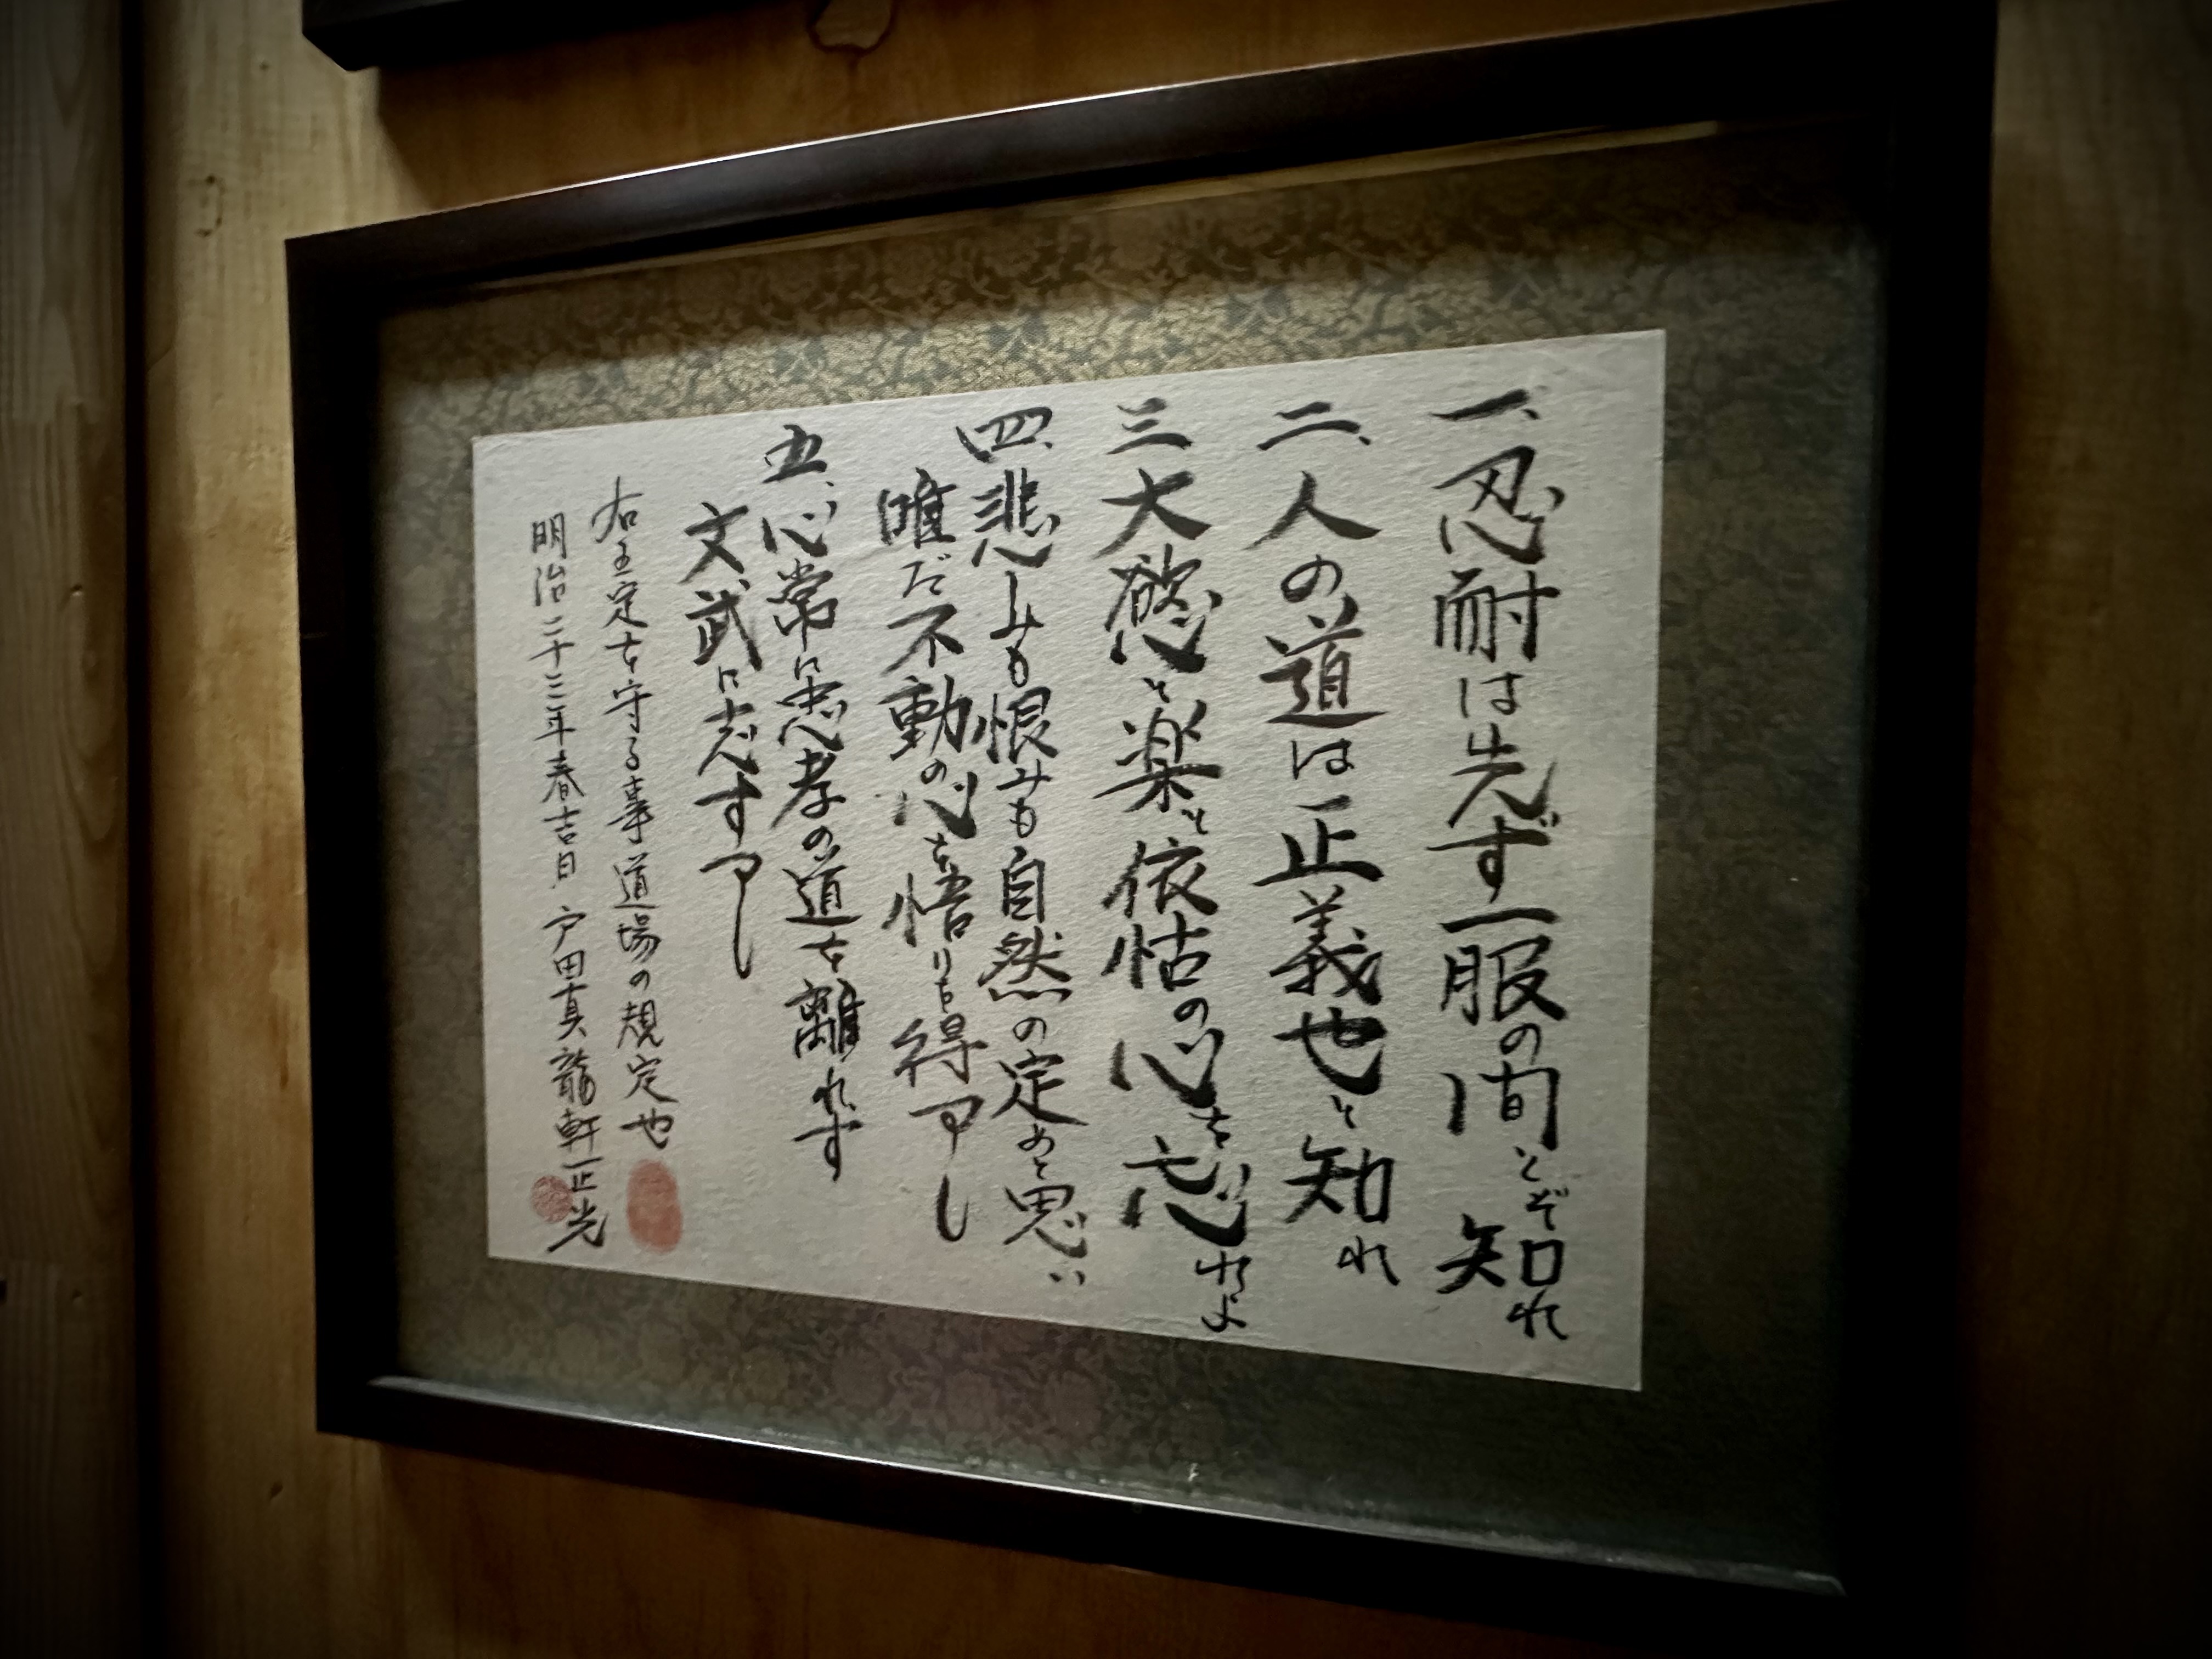 一、忍耐は先ず一服の間とぞ知れ
二、人の道は正義也と知れ
三、大慾と楽と依怙の心を忘れよ
四、悲しみも恨みも自然の定めと思い
唯だ不動の心を悟りを得可し
五、心常に忠孝の道を離れず
文武に志す可し
右五定を守る事道場の規定也
明治二十三年春吉日 戸田真龍軒正光